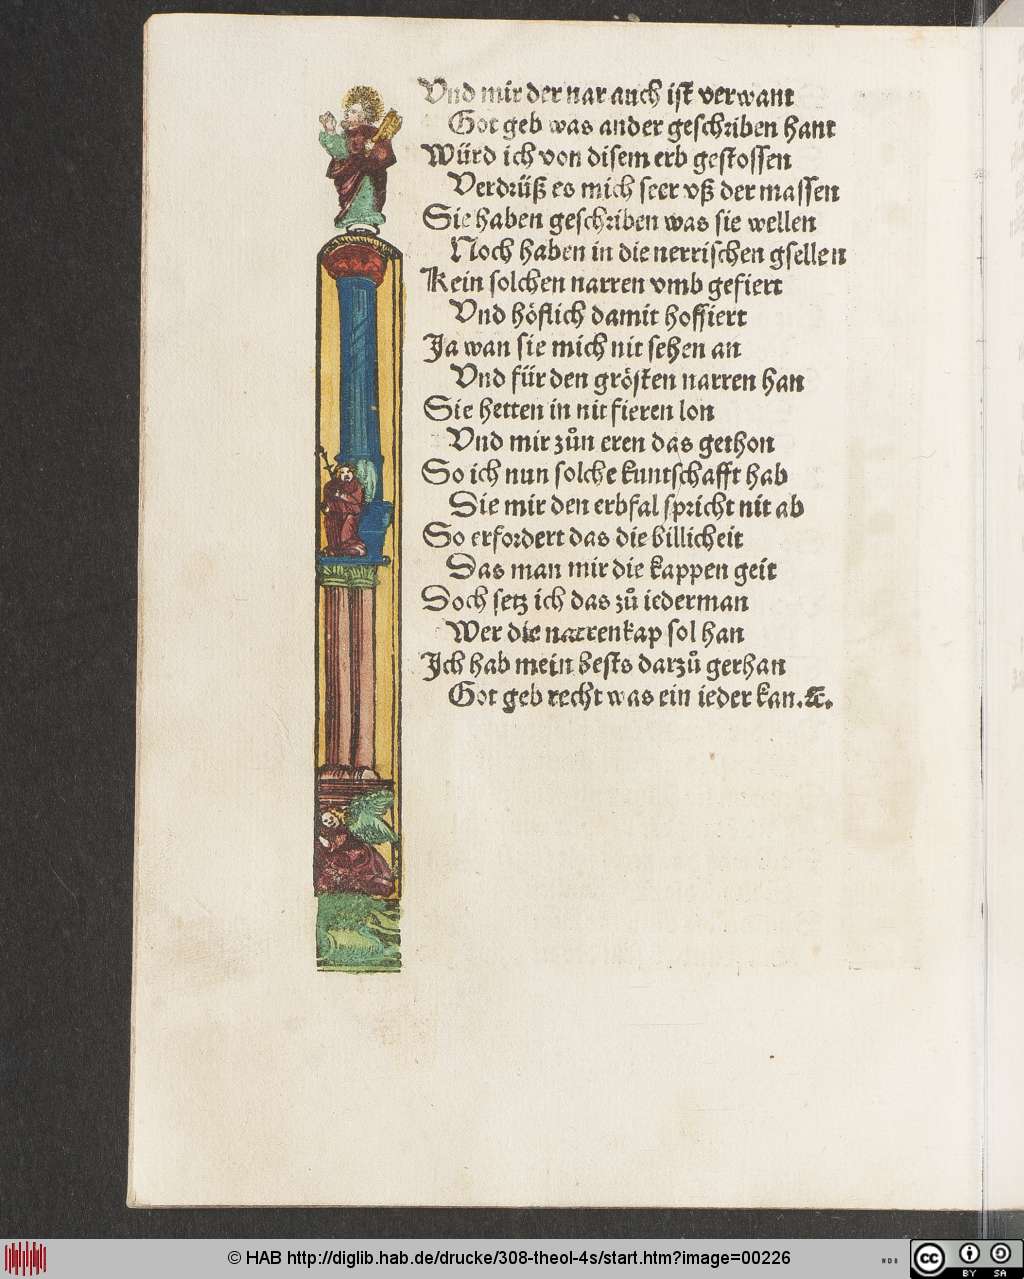 Vnd mir der nar auch ist verwant
Got geb was ander geschriben hant
Würd ich von disem erb gestossen
Verdrüß es mich seer vß der massen
Sie haben geschriben was sie wellen
Noch haben in die nerrischen gsellen
Kein solchen narren vmb gefiert
Vnd höflich damit hoffiert
Ja wan sie mich nit sehen an
Vnd für den grösten narren han
Sie hetten in nit fieren lon
Vnd mir zůn eren das gethon
So ich nun solche kuntschafft hab
Die mir den erbfal spricht nit ab
So erfordert das die billicheit
Das man mir die kappen geit
Doch setz ich das zů iederman
Wer die narrenkap sol han
Ich hab mein bests darzů gethan
Got geb recht was ein ieder kan.⁊c.
© HAB http://diglib.hab.de/drucke/308-theol-4s/start.htm?image=00226
WDB
cc BY SA